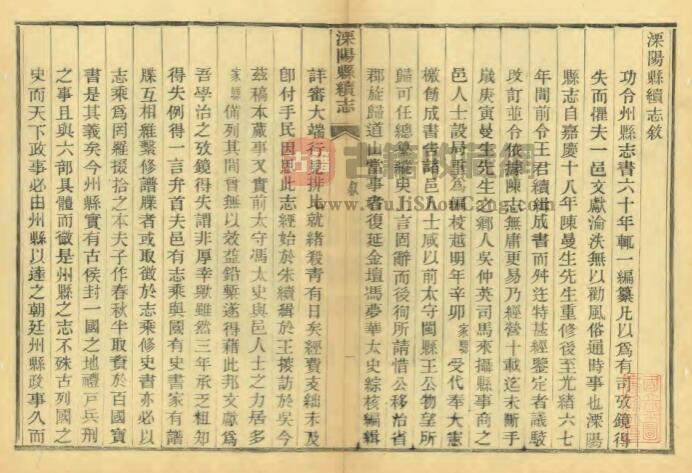 溧陽縣續志敘
功令州縣志書六十年輒一編纂凡以爲有司攷鏡得
失而瞿夫一邑文獻淪泆無以勸風俗通時事也溧陽
縣志自嘉慶十八年陳曼生先生重修後至光緒六七
年間前令王君續緝成書而舛迕特甚經鑒定者議駮
攺訂並令依據陳志無庸更易乃經營十載迄未斷手
歲庚寅曼生先生之鄉人吳仲英司馬來攝縣事商之
邑人士設局重爲編校越明年辛卯家驤受代奉大憲
檄飭成書書諸邑人士咸以前太守閩縣王公物望所
歸可任總纂縱臾一言固辭而後徇所請惜公移治省
郡旋歸道山當事者復延金壇馮夢華太史綜核編輯
溧陽縣續志
敘
一
詳審大端行見排比就緒殺青有日矣經費支絀未及
卽付手民因思此志經始於朱續緝於王搜訪於吳今
茲稿本蕆事又實前太守馮太史與邑人士之力居多
家驤備列其間曾無以效益鉛槧遂得藉此邦文獻爲
吾學治之攷鏡得失謂非厚幸歟雖然三年承乏粗知
得失例得一言弁首夫邑有志乘與國有史書家有譜
牒互相維繫修譜牒者或取徵於志乘修史書亦必以
志乘爲罔羅掇拾之本夫子作春秋半取資於百國寶
書是其義矣今州縣實有古侯封一國之地禮戸兵刑
之事且與六部具體而微是州縣之志不殊古列國之
史而天下政事必由州縣以達之朝廷州縣政事久而
古籍收藏网
www.GuJiShouCang.com